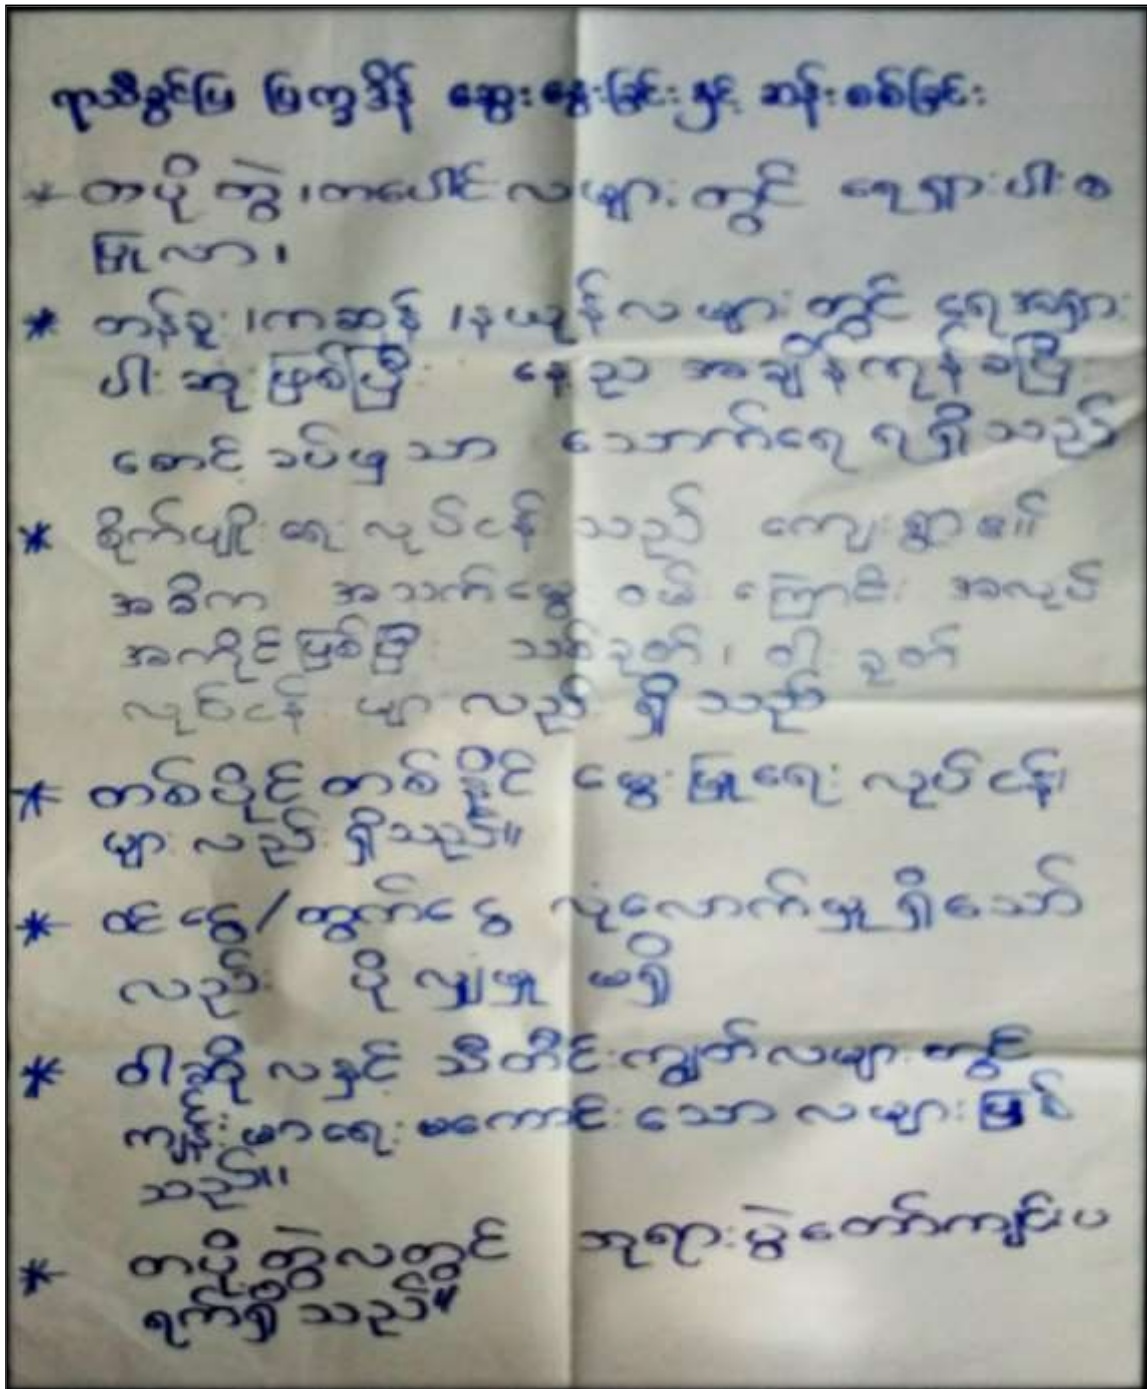 ရာသီခွင်ပြ ပြက္ခဒိန် ဆွေးနွေးခြင်းနှင့် ဆန်းစစ်ခြင်း
* တပို့တွဲ၊တပေါင်းလများတွင် ရေရှားပါးစ
ပြုလာ၊
* တန်ခူး၊ကဆုန်၊နယုန်လများတွင် ရေအရှား
ပါးဆုံးဖြစ်ပြီး နေ့ည အချိန်ကုန်ခံပြီး
စောင့်ခပ်မှသာ သောက်ရေ ရရှိသည်
* စိုက်ပျိုးရေးလုပ်ငန်းသည် ကျေးရွာ၏
အဓိက အသက်မွေးဝမ်းကြောင်း အလုပ်
အကိုင်ဖြစ်ပြီး သစ်ခုတ်၊ ဝါးခုတ်
လုပ်ငန်းများလည်း ရှိသည်
* တစ်ပိုင်တစ်နိုင် မွေးမြူရေးလုပ်ငန်း
များလည်းရှိသည်။
* ဝင်ငွေ/ထွက်ငွေ လုံလောက်မှုရှိသော်
လည်း ပိုလျှံမှု မရှိ
* ဝါဆိုလနှင့် သီတင်းကျွတ်လများတွင်
ကျန်းမာရေးမကောင်းသောလများဖြစ်
သည်။
* တပို့တွဲလတွင် ဘုရားပွဲတော်ကျင်းပ
ရက်ရှိသည်။